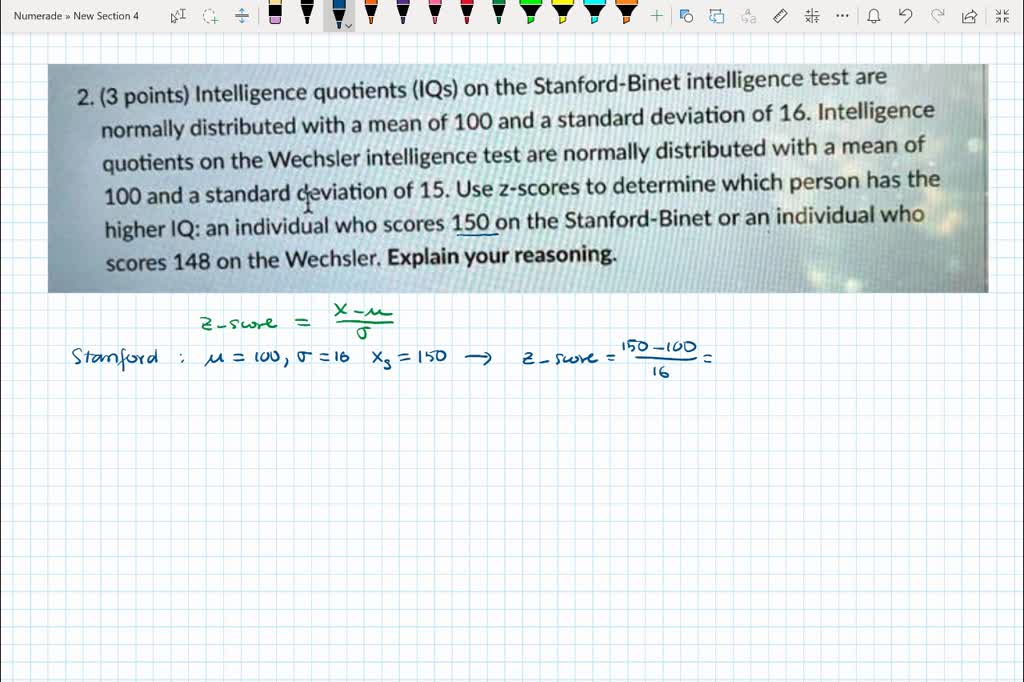 Numerade » New Section 4
2. (3 points) Intelligence quotients (IQs) on the Stanford-Binet intelligence test are
normally distributed with a mean of 100 and a standard deviation of 16. Intelligence
quotients on the Wechsler intelligence test are normally distributed with a mean of
100 and a standard deviation of 15. Use z-scores to determine which person has the
higher IQ: an individual who scores 150 on the Stanford-Binet or an individual who
scores 148 on the Wechsler. Explain your reasoning.
z-score = x-μ/σ
Stanford : μ = 100, σ = 16 xs = 150 → z-score = 150-100/16 =